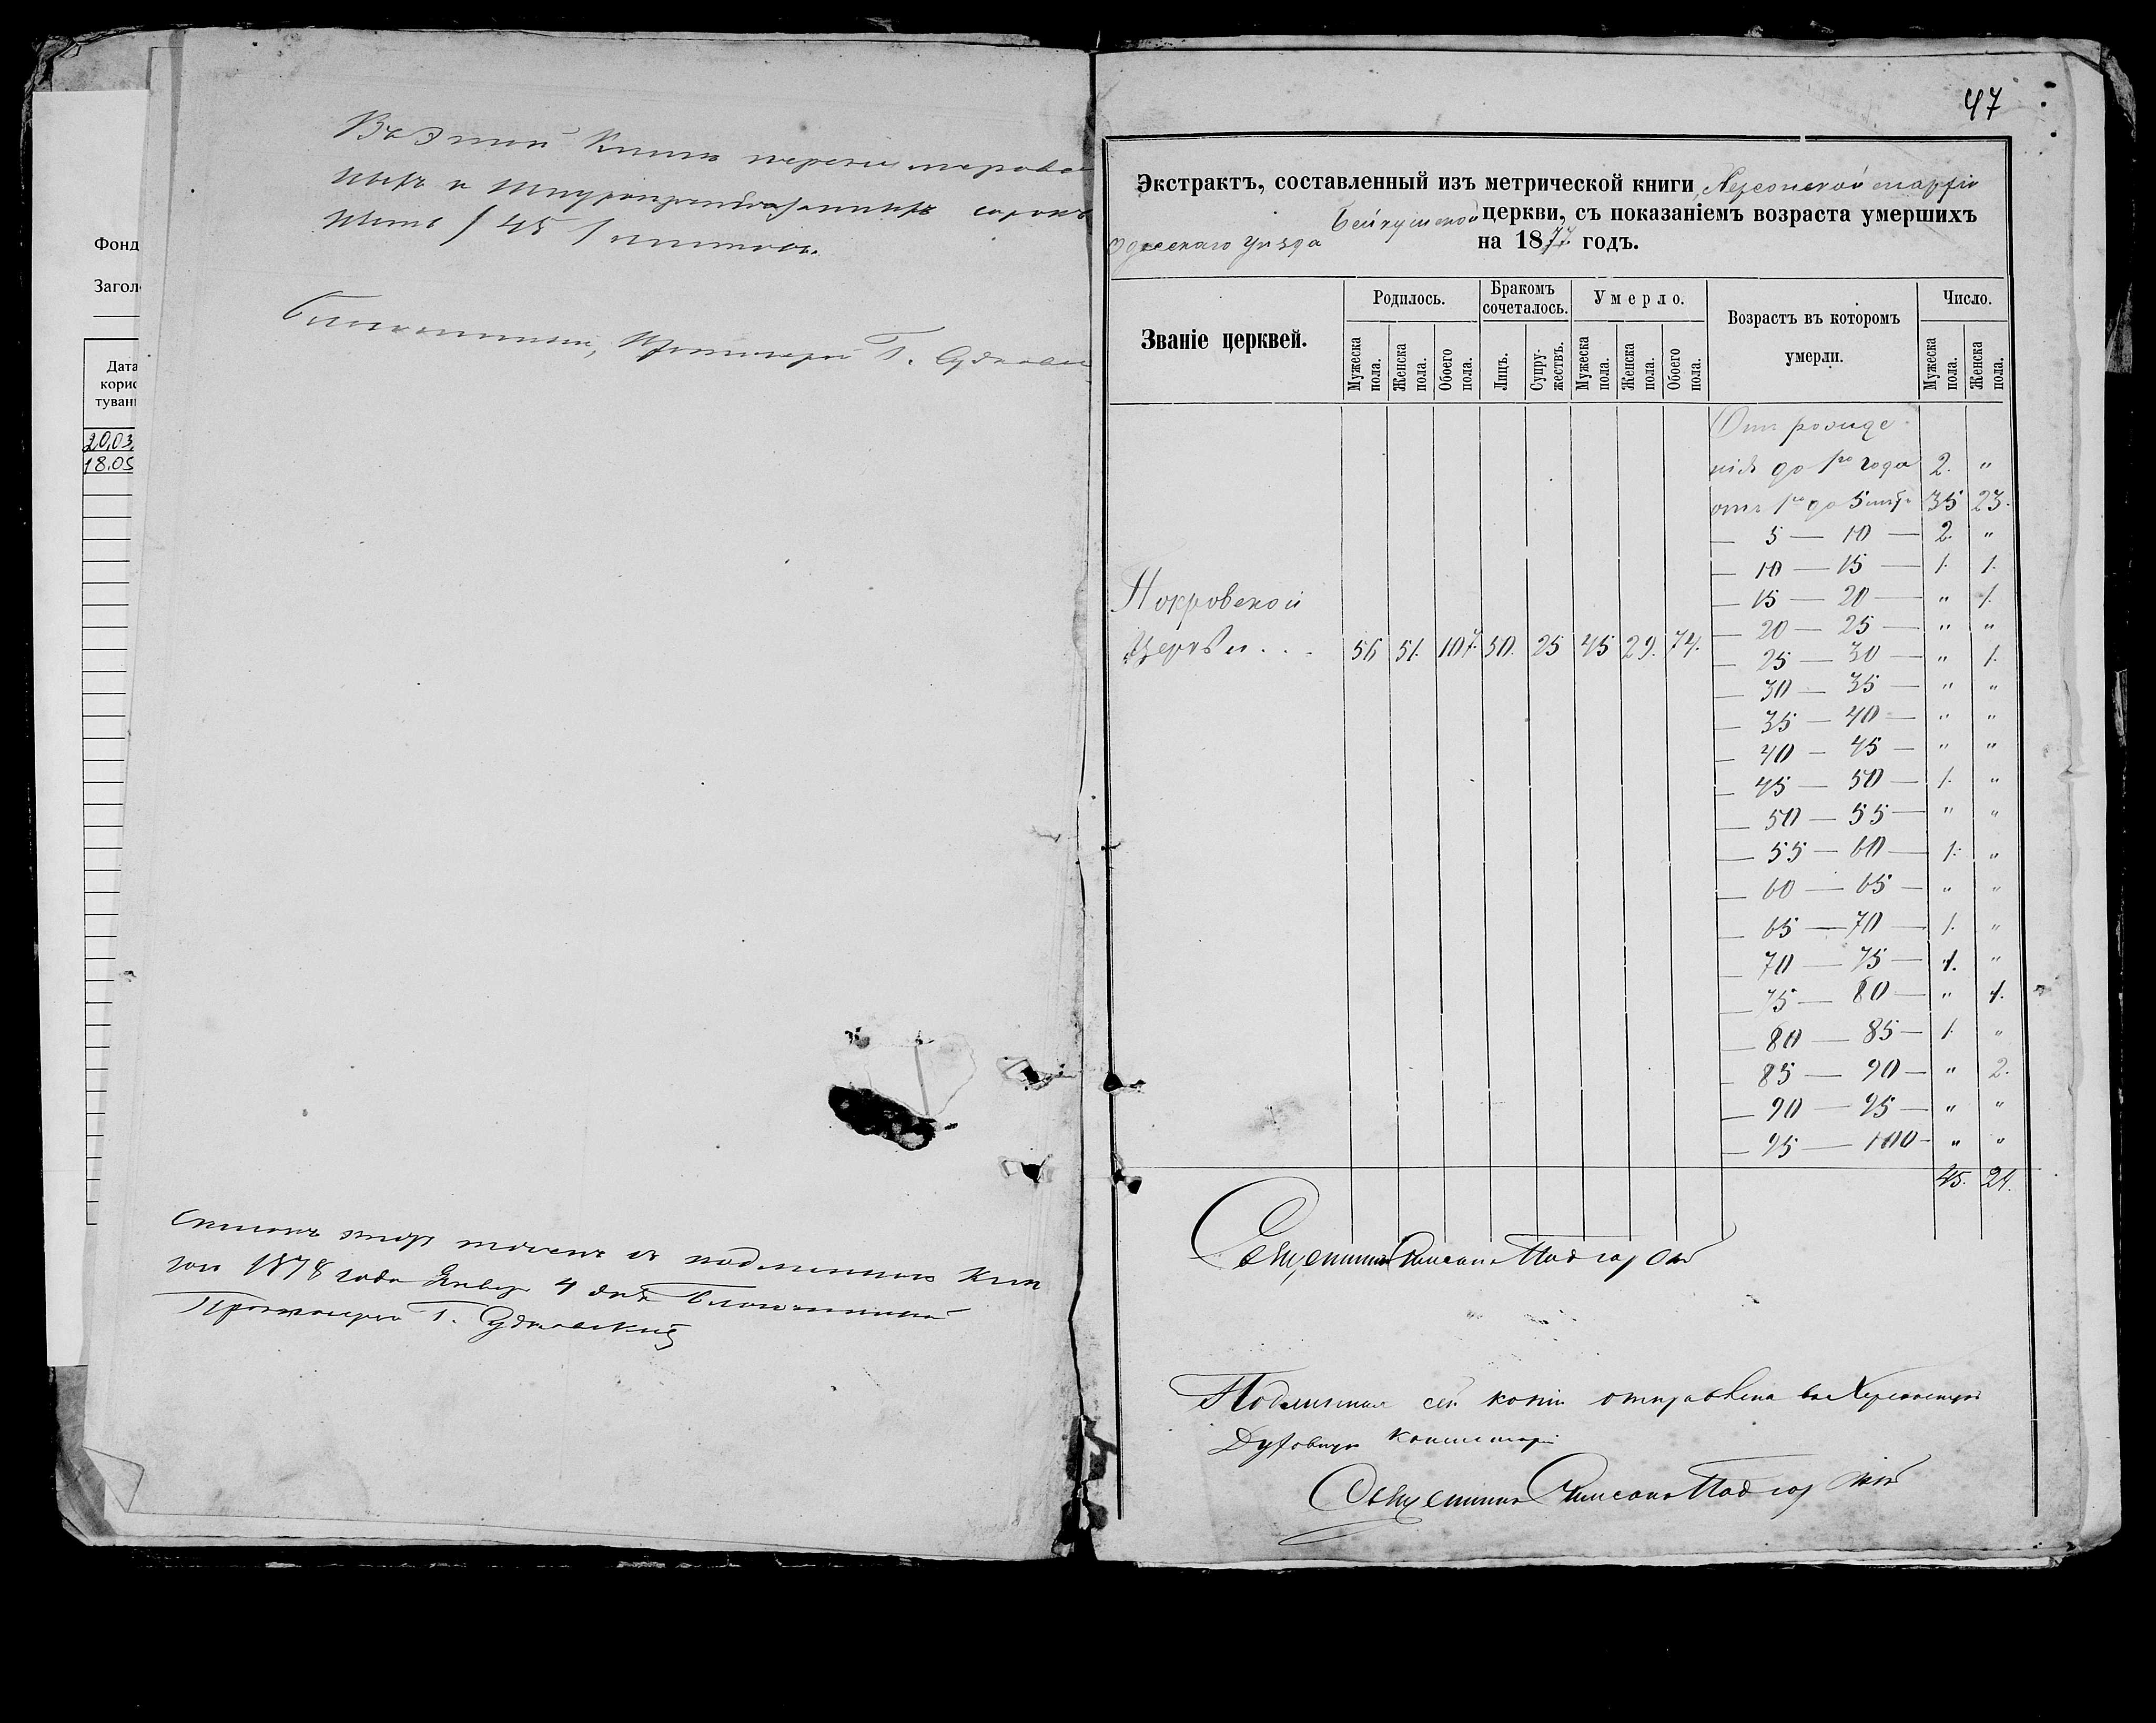 Фонд
Заголо
Дата
корис
туванн
20.03.
18.05
Въ этой Книгѣ перенумерова
ныхъ и шнуроприпечатанныхъ сорокъ
пять /45/ листовъ.
Благочинный, Протоіерей Г. Судковск
Списокъ этотъ вѣренъ съ подлинною Кни
гою 1878 года Январ 4 дня Благочинный
Протоіерей Г. Судковскій
47
Экстрактъ, составленный изъ метрической книги Херсонской епархіи
Одесскаго уѣзда Бейкушской церкви, съ показаніемъ возраста умершихъ
на 1877 годъ.
Званіе церквей.
Родилось.
Бракомъ сочеталось.
Умерло.
Возрастъ въ которомъ умерли.
Число.
Мужеска пола. Женска пола. Обоего пола. Лицъ. Супру-жествъ. Мужеска пола. Женска пола. Обоего пола. Мужеска пола. Женска пола.
Покровской
Церкви . . . 56 51. 107. 50. 25 45 29. 74.
Отъ рожде
нія до 1го года 2. "
отъ 1го до 5 лѣтъ 35 23.
— 5 — 10 — 2. "
— 10 — 15 — 1. 1.
— 15 — 20 — " 1.
— 20 — 25 — " "
— 25 — 30 — " 1.
— 30 — 35 — " "
— 35 — 40 — " "
— 40 — 45 — " "
— 45 — 50 — 1. "
— 50 — 55 — " "
— 55 — 60 — 1. "
— 60 — 65 — " "
— 65 — 70 — 1. "
— 70 — 75 — 1. "
— 75 — 80 — " 1.
— 80 — 85 — 1. "
— 85 — 90 — " 2.
— 90 — 95 — " "
— 95 — 100 — " "
45. 29.
Священникъ Подгор
Подлинная сей копіи отправлена въ Херсонскую
Духовную Консисторію
Священникъ Подгор